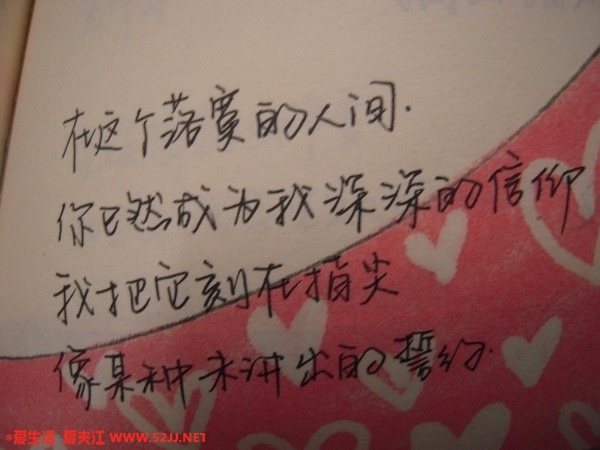 在这个落寞的人间.
你已然成为我深深的信仰
我把它刻在指尖
像某种未讲出的誓约.
爱生活 爱夹江 WWW.52JJ.NET